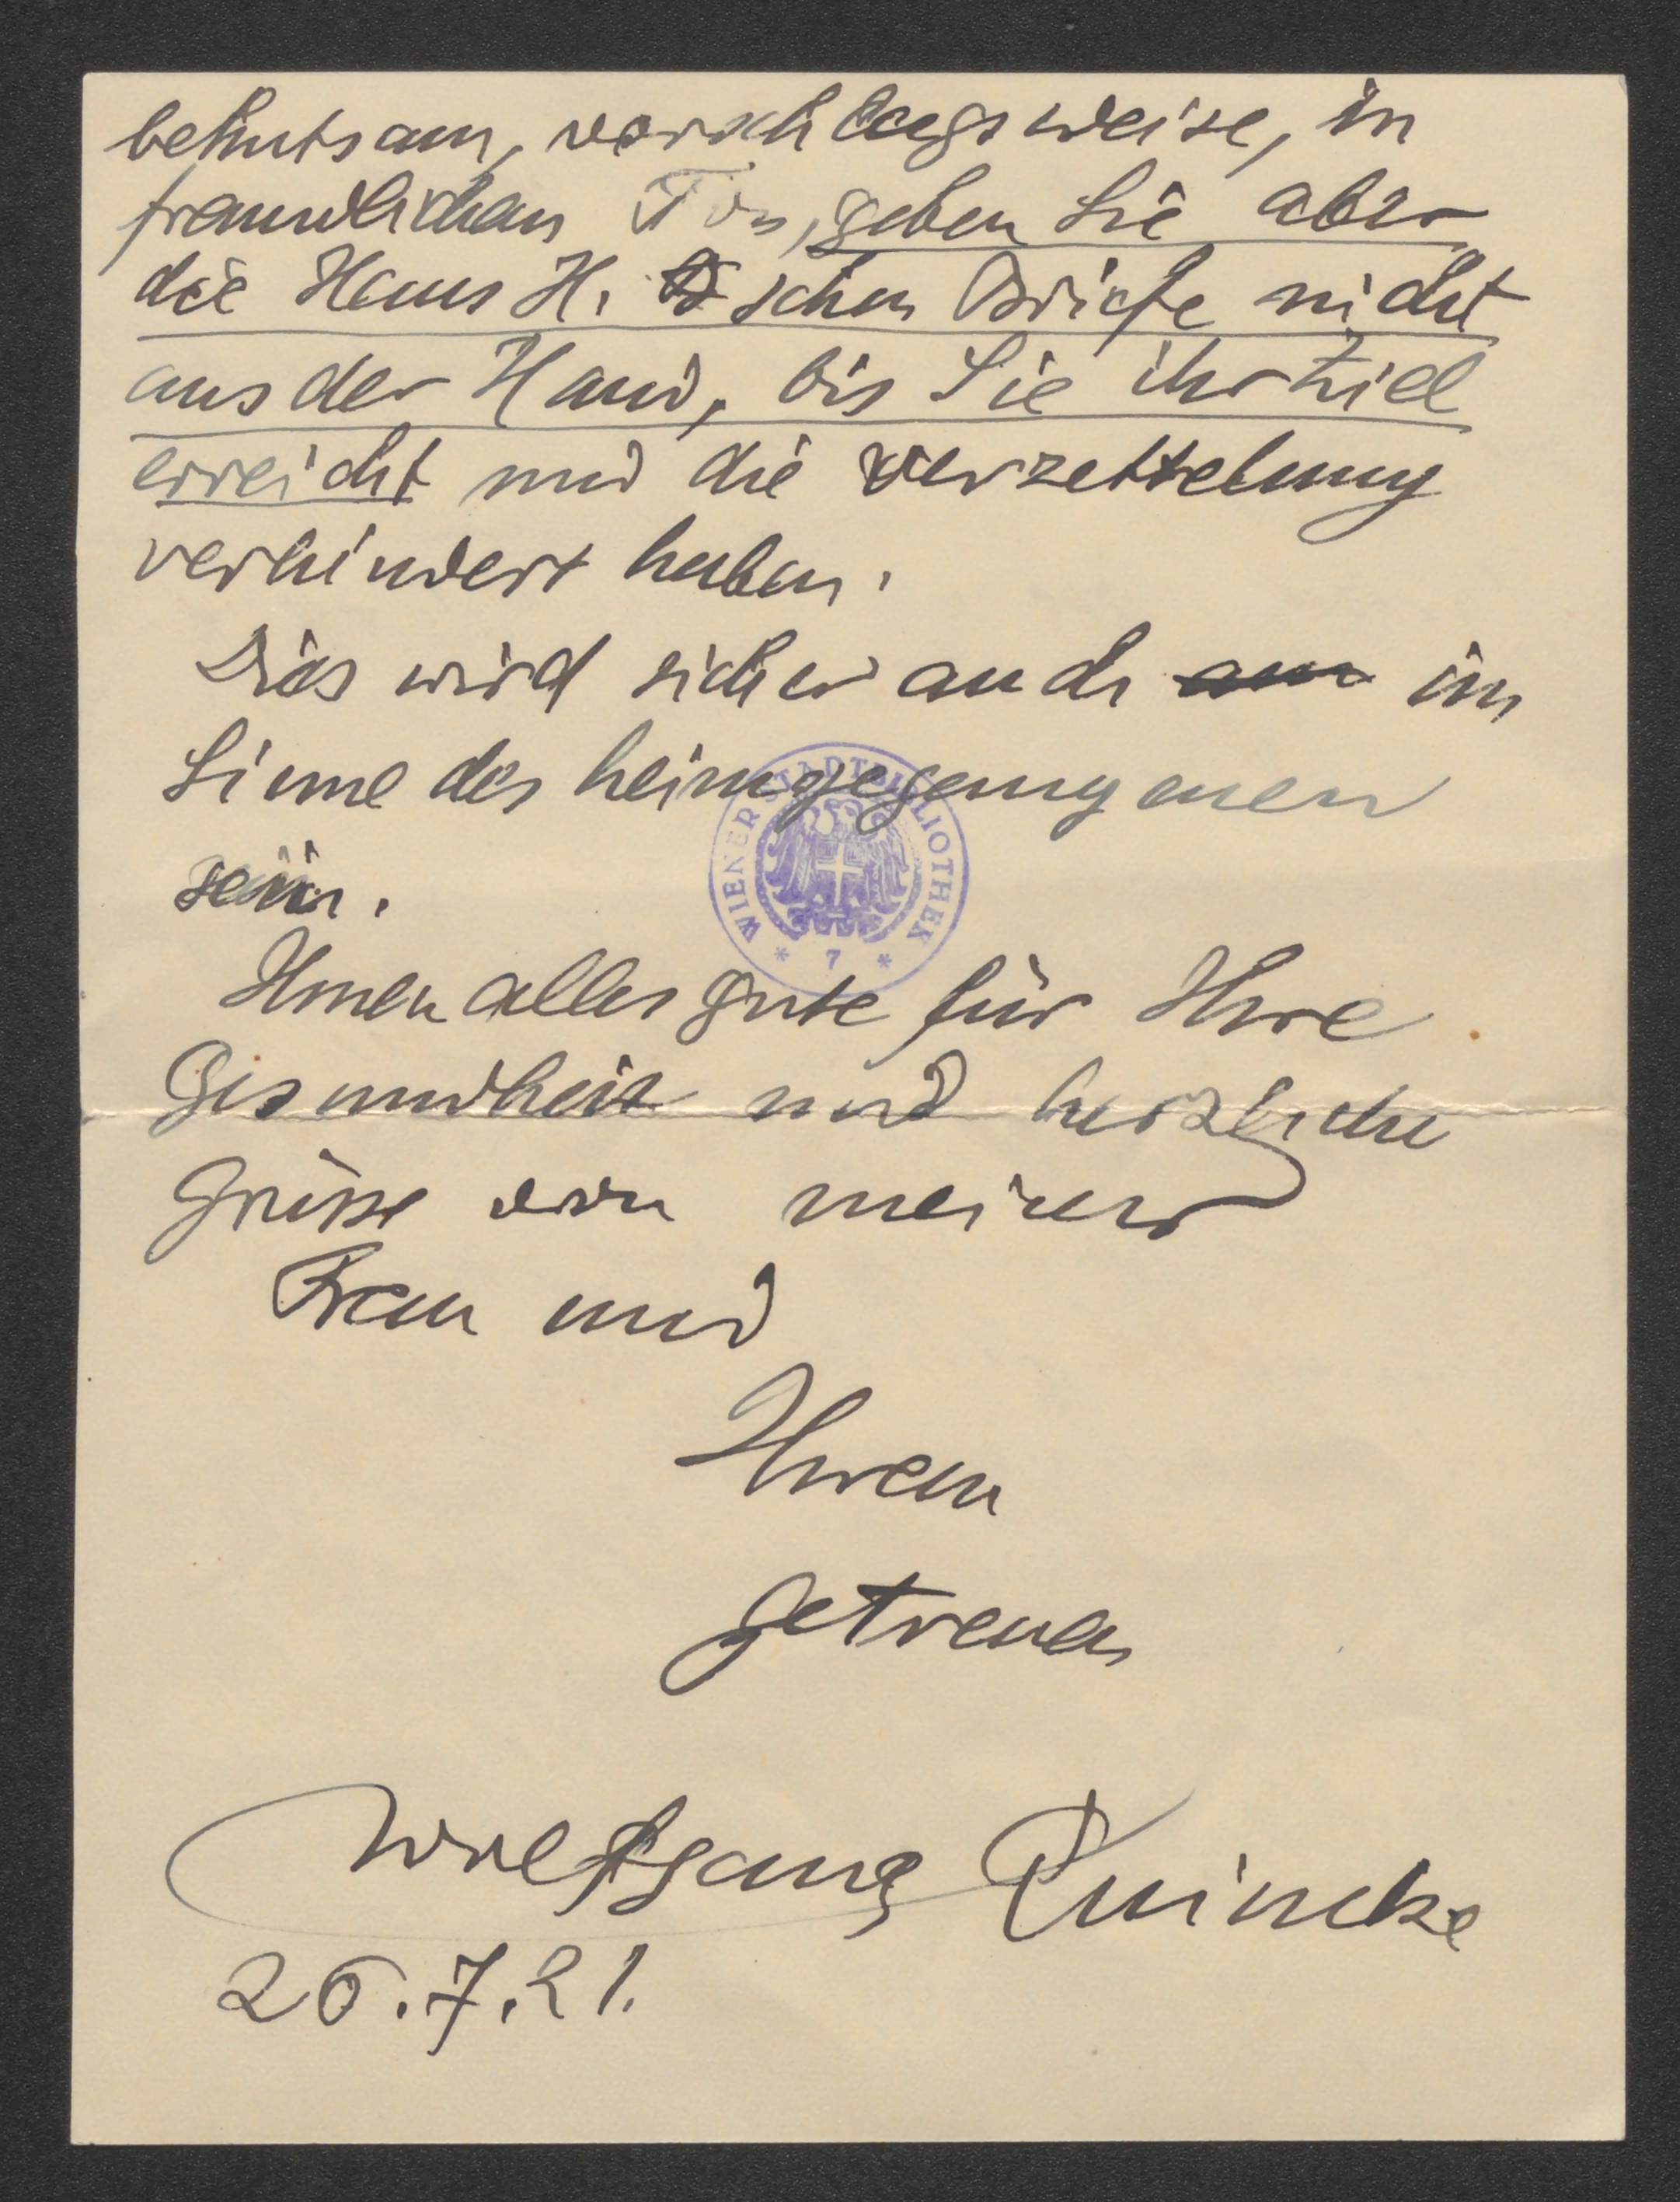 behutsam, vorschlagsweise, in
freundlichem Ton, geben Sie aber
die Hans H. B schen Briefe nicht
aus der Hand, bis Sie ihr Ziel
erreicht und die Verzettelung
verhindert haben.
Dies wird sicher auch am im
Sinne des heimgegangenen
sein.
Ihnen alles gute für Ihre
Gesundheit und herzliche
Grüsse von meiner
Frau und
Ihrem
getreuen
Wolfgang Quincke
26.7.21.
WIENER STADTBIBLIOTHEK
* 7 *